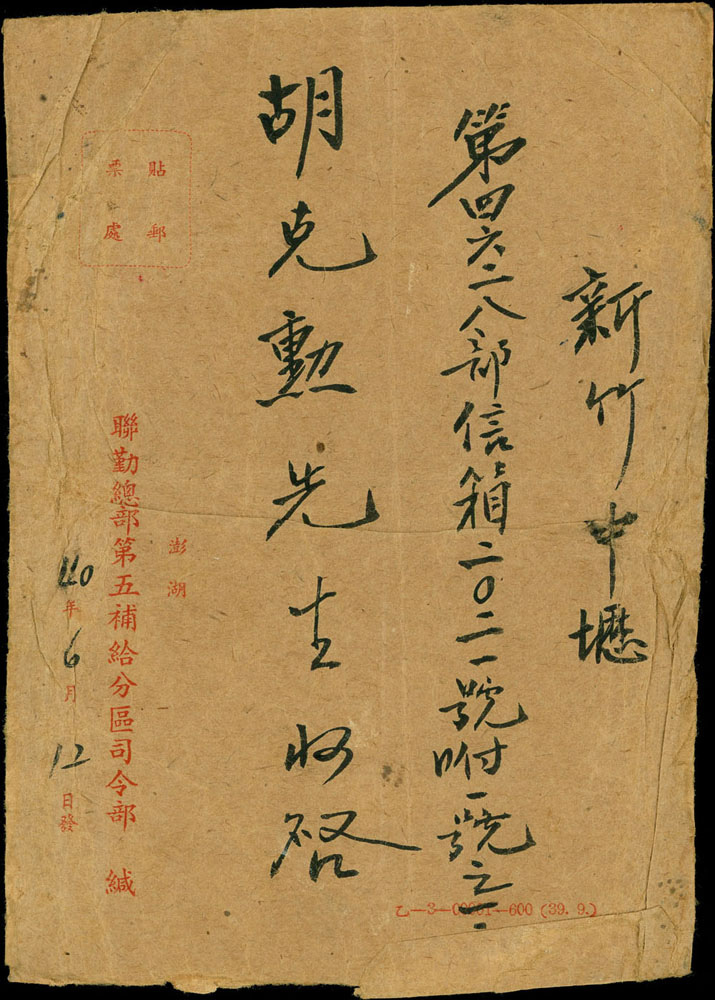 新竹中壢
第四六二八部信箱二〇二一號附一號之二
胡克勳先生收啓
貼郵
票處
澎湖
聯勤總部第五補給分區司令部 緘
40年6月12日發
乙—3—00001—600 (39. 9.)